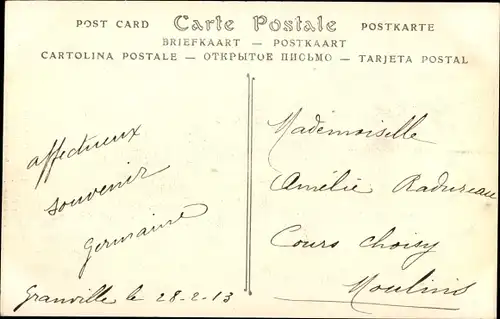 POST CARD Carte Postale POSTKARTE
BRIEFKAART — POSTKAART
CARTOLINA POSTALE — ОТКРЫТОЕ ПИСЬМО — TARJETA POSTAL
affectueux
souvenir
Germaine
Granville le 28-2-13
Mademoiselle
Amélie Radureau
Cours Choisy
Moulins